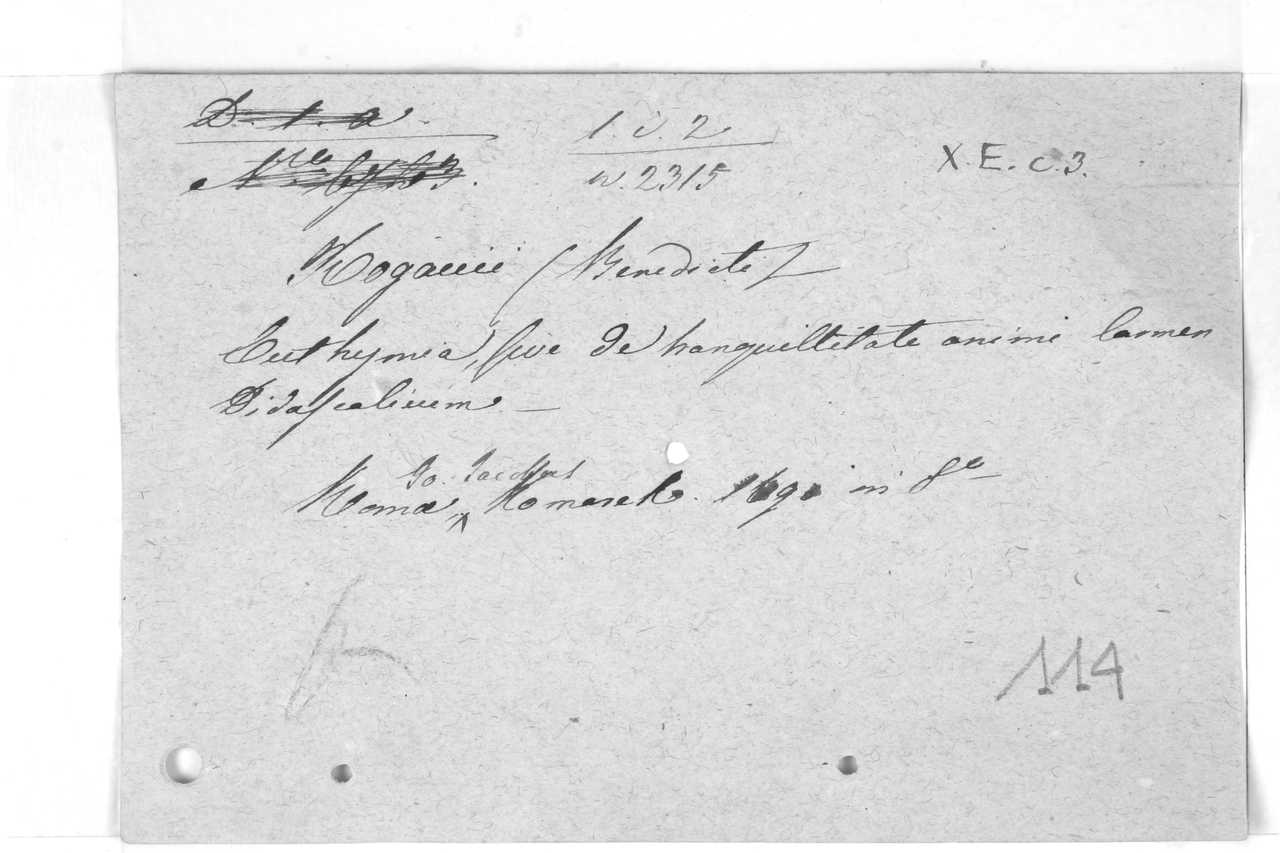 D. 1. a
1. d. 2
X. E. c. 3.
n. 2315
Rogacci (Benedicti)
Euthymia, sive de tranquillitate animi Carmen
Didascalicum —
Jo. Jacobus
Romæ, Komarek. 1690 in 8º
114